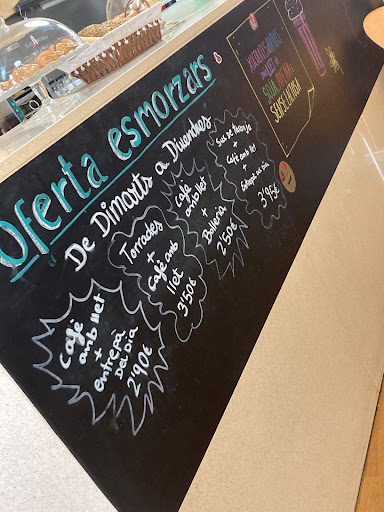 Oferta esmorzars
De Dimarts a Divendres
Cafè
amb llet
+
entrepà
DEL DIA
2'90€
Torrades
+
Cafè amb
llet
3'50€
Cafè
amb llet
+
Bolleria
2'50€
Suc de taronja
+
Cafè amb llet
+
3'95€
SENSE LACTOSA